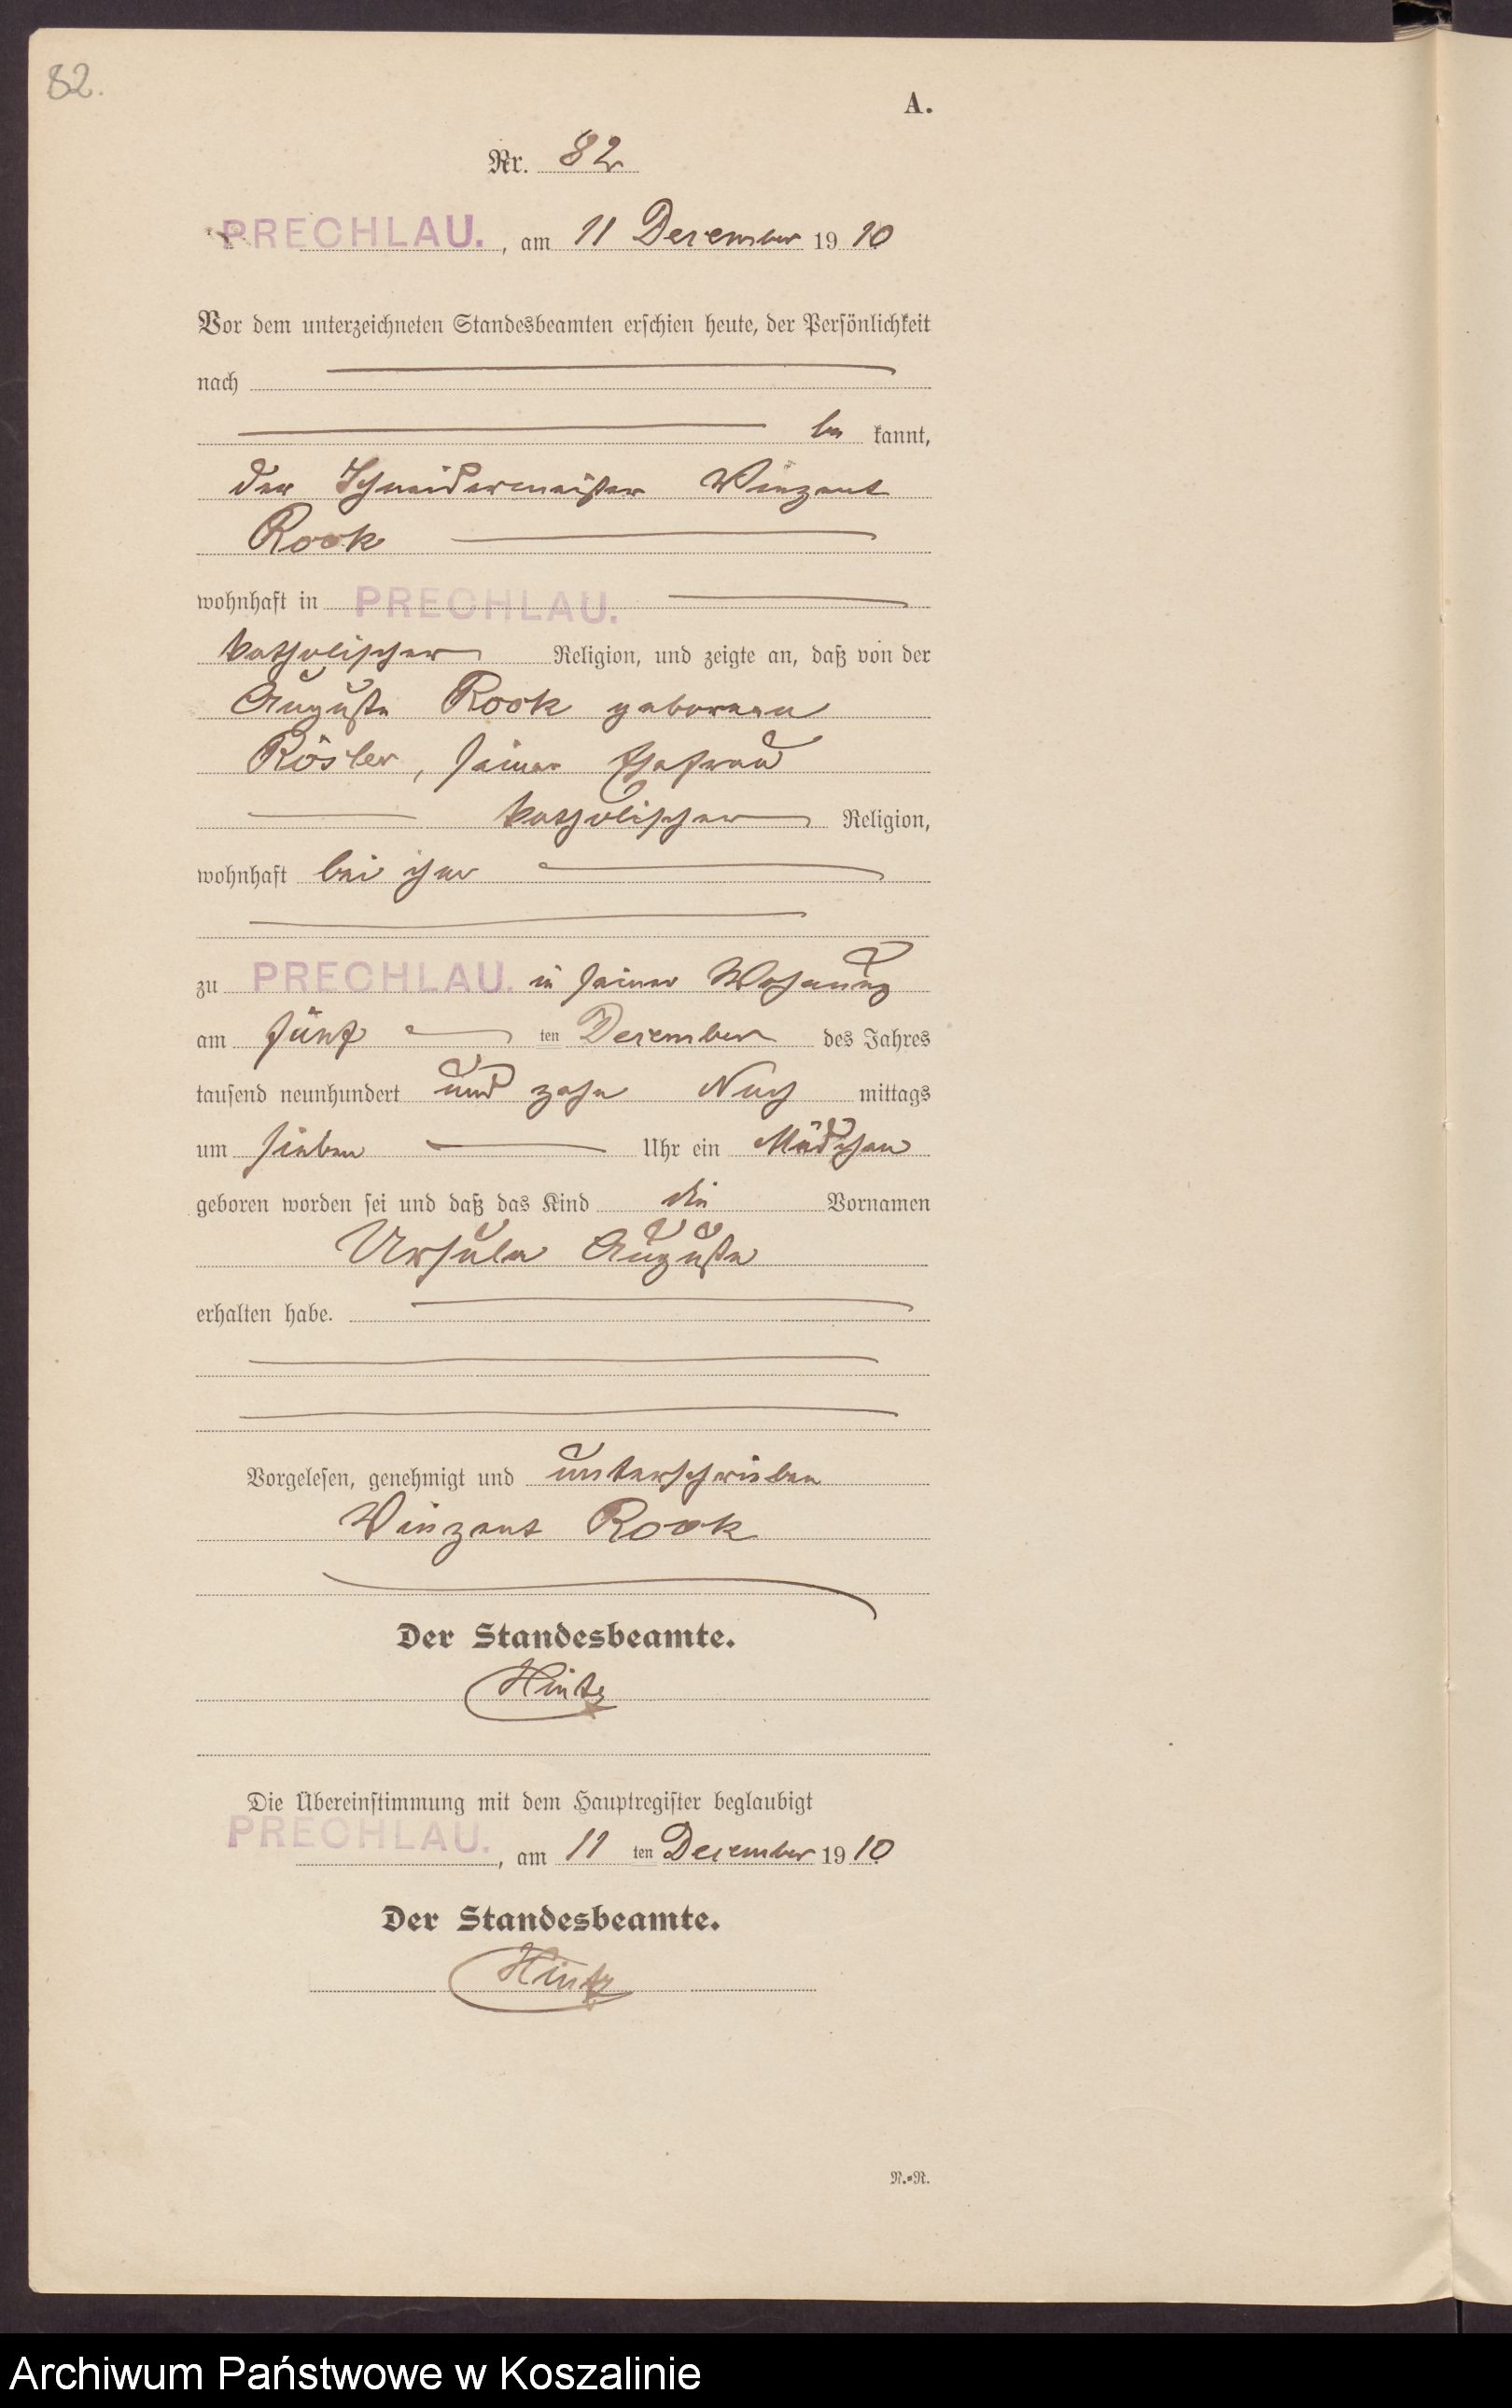 82.
A.
Nr. 82
PRECHLAU. , am 11 Dezember 19 10
Vor dem unterzeichneten Standesbeamten erschien heute, der Persönlichkeit
nach
be kannt,
der Schneidermeister Winzent
Rook
wohnhaft in PRECHLAU.
katholischer Religion, und zeigte an, daß von der
Auguste Rook geborenen
Rösler, seiner Ehefrau
katholischer Religion,
wohnhaft bei ihm
zu PRECHLAU. in seiner Wohnung
am fünf ten Dezember des Jahres
tausend neunhundert und zehn Nach mittags
um sieben Uhr ein Mädchen
geboren worden sei und daß das Kind die Vornamen
Ursula Auguste
erhalten habe.
Vorgelesen, genehmigt und unterschrieben
Winzent Rook
Der Standesbeamte.
Hintz
Die Übereinstimmung mit dem Hauptregister beglaubigt
PRECHLAU. , am 11 ten Dezember 19 10
Der Standesbeamte.
Hintz
N.=R.
Archiwum Państwowe w Koszalinie